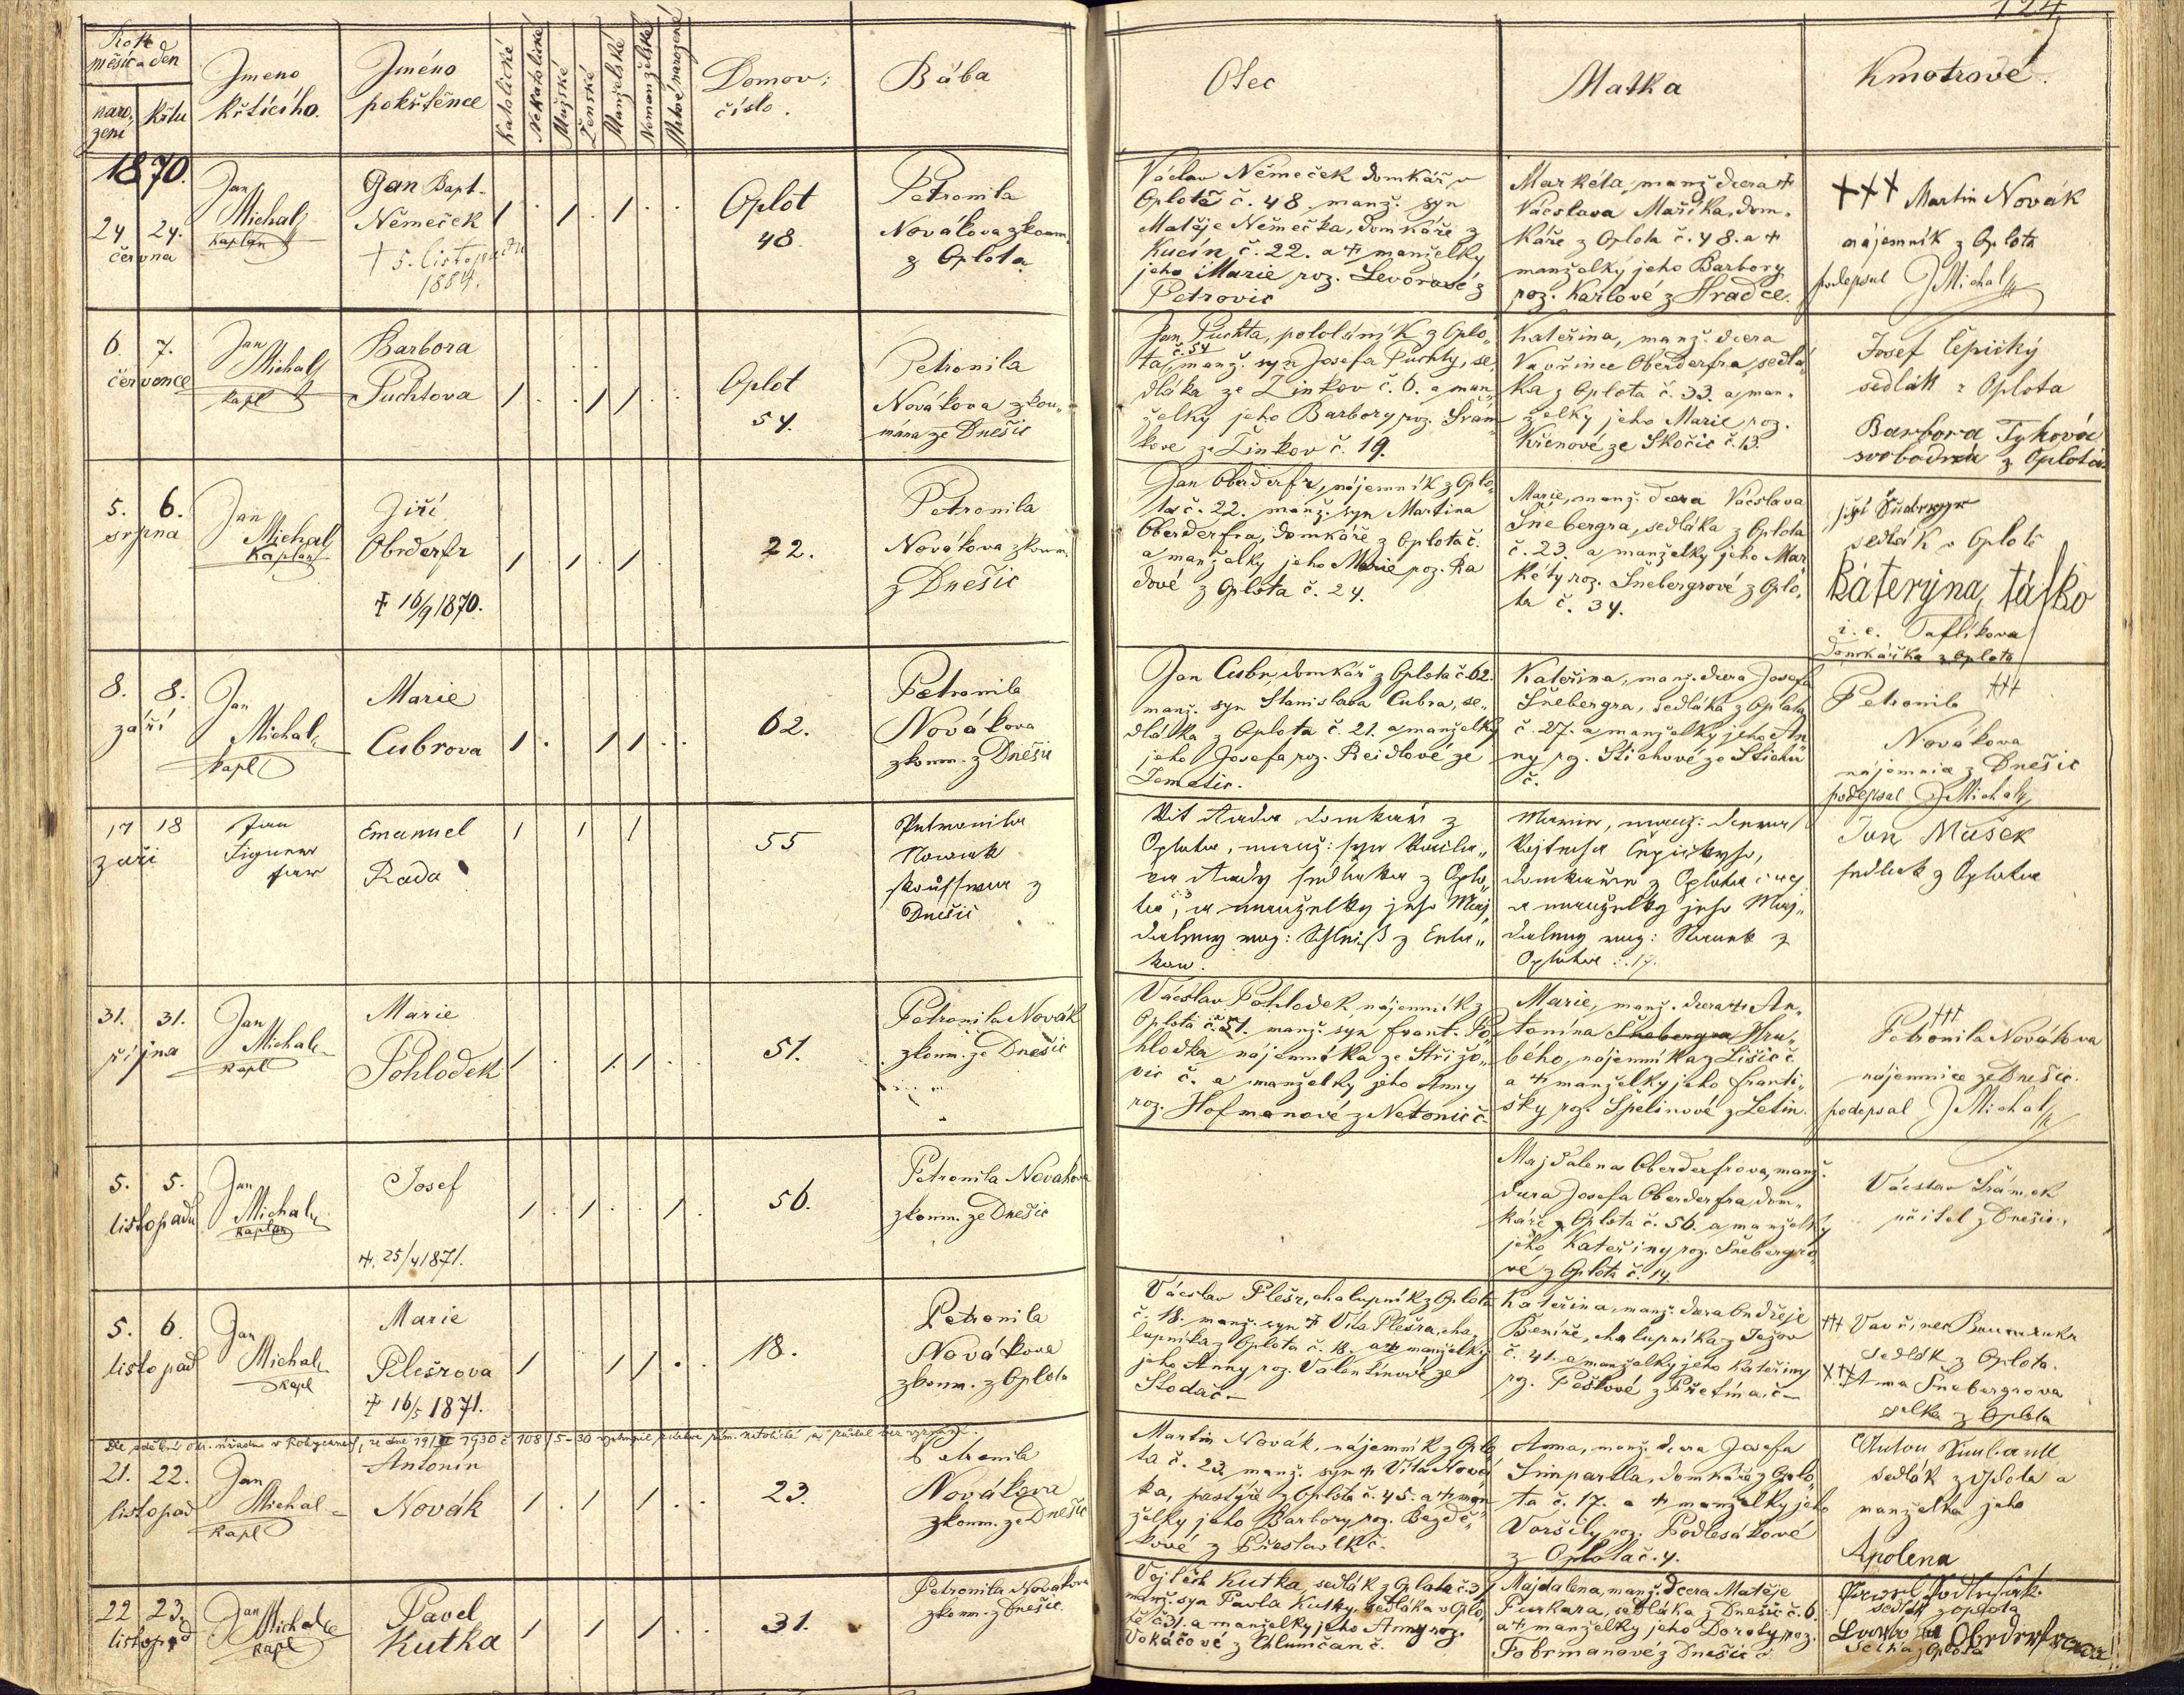 124
Rok
měsíc a den
naro-
zení
křtu
Jmeno
křtícího.
Jméno
pokřtěnce
Katolické
Nekatolické
Mužské
Ženské
Manželské
Nemanželské
Mrtvě narozené
Domov:
číslo.
Bába
Otec
Matka
Kmotrové.
1870.
24 24.
června
Jan
Michal
Kaplan
Jan Bapt.
Němeček
† 5. listopadu
1884.
/ . / . / . .
Oplot
48.
Petronila
Novákova zkoum.
z Oplota
Václav Němeček domkář v
Oplotě č. 48. manž. syn
Matěje Němečka, domkáře z
Kucín č. 22. a † manželky
jeho Marie roz. Levorové z
Petrovic
Markéta, manž. dcera †
Václava Maříka, dom-
káře z Oplota č. 48. a †
manželky jeho Barbory
roz. Karlové z Hradce.
+++ Martin Novák
nájemník z Oplota
podepsal J Michal
6. 7.
července
Jan
Michal
kapl
Barbora
Puchtova
/ . . / / . .
Oplot
54.
Petronila
Novákova zkou-
mána ze Dnešic
Jan Puchta, pololáník z Oplo-
ta č. 54 manž. syn Josefa Puchty, se-
dláka ze Žinkov č. 6. a man-
želky jeho Barbory roz. Šrám-
kové ze Žinkov č. 19.
Kateřina, manž. dcera
Vavřince Oberderfra, sedlá-
ka z Oplota č. 33. a man-
želky jeho Marie roz.
Křenové ze Skočic č. 13.
Josef Čepický
sedlák z Oplota
Barbora Tyková
svobodná z Oplota
5. 6.
srpna
Jan
Michal
Kaplan
Jiří
Obrderfr
† 16/9 1870.
/ . / . / .
22.
Petronila
Novákova zkoum.
z Dnešic
Jan Oberderfr, nájemník z Oplo-
ta č. 22. manž. syn Martina
Oberderfra, domkáře z Oplota č.
a manželky jeho Marie roz. Ra
dové z Oplota č. 24.
Marie, manž. dcera Václava
Šnebergra, sedláka z Oplota
č. 23. a manželky jeho Mar
kéty roz. Šnebergrové z Oplo-
ta č. 34.
jiří
sedlák v Oplotě
Káteryna, táflko
i. e. Taflíkova
Domkářka z Oplota
8. 8.
září
Jan
Michal
kapl
Marie
Cubrova
/ . / / . .
62.
Petronila
Novákova
zkoum. z Dnešic
Jan Cubr, domkář z Oplota č. 62.
manž. syn Stanislava Cubra, se-
dláka z Oplota č. 21. a manželky
jeho Josefa roz. Reidlové ze
Temetic.
Kateřina, manž. dcera Josefa
Šnebergra, sedláka z Oplota
č. 27. a manželky jeho An
ny roz. Stichové ze
č.
Petronila +++
Novákova
nájemnice z Dnešic
podepsal J Michal
17 18
září
Jan
Figner
farář
Emanuel
Rada
/ / /
55
Petronila
Nowak
z
Dnešic
Vít Rada domkář z
Oplota, manž: syn Václa-
va Rady sedláka z Oplo-
ta, a manželky jeho Maj-
daleny roz:
Marie, manž: dcera
Vojtěcha Čepického,
domkáře z Oplota
a manželky jeho Maj-
daleny roz: Nowak z
Oplota č. 17.
Jan Mašek
sedlák z Oplota
31. 31.
října
Jan
Michal
kapl
Marie
Pohlodek
/ . / / . .
51.
Petronila Novák
zkoum. ze Dnešic
Václav Pohlodek nájemník z
Oplota č. 51. manž. syn Frant. Po-
hlodka nájemníka ze Střižo-
vic č. a manželky jeho Anny
roz. Hofmanové z Netonic č.
Marie, manž. dcera † An-
tonína Šnebergra Hru-
bého, nájemníka z Lišic č.
a † manželky jeho Franti-
šky roz. Špelinové z Letin.
+++
Petronila Novákova
nájemnice ze Dnešic.
podepsal J Michal
5. 5.
listopadu
Jan
Michal
kaplan
Josef
†. 25/4 1871.
/ . / . . / .
56.
Petronila Novákova
zkoum. ze Dnešic
Majdalena Oberderfrova, manž.
dcera Josefa Oberderfra dom-
káře z Oplota č. 56. a manželky
jeho Kateřiny roz. Šnebergro-
vé z Oplota č. 14.
Václav Šrámek
učitel z Dnešic.
5. 6.
listopad
Jan
Michal
kapl
Marie
Plešrova
† 16/5 1871.
/ / / . .
18.
Petronila
Novákova
zkoum. z Oplota
Václav Plešr, chalupník z Oplota
č. 18. manž. syn † Víta Plešra, cha-
lupníka z Oplota č. 18. a † manželky
jeho Anny roz. Valentinové ze
Stodač –
Kateřina, manž. dcera Ondřeje
Beníře, chalupníka z Ježov
č. 41. a manželky jeho Kateřiny
roz. Peškové z Přetína č –
+++ Vavřinec
sedlák z Oplota.
+++ Anna Šnebergrova
selka z Oplota
Dle sdělení okr. úřadu v Rokycanech, ze dne 19/II 1930 č 108/5-30 vystoupil z církve řím. katolické
21. 22.
listopad
Jan
Michal
kapl
Antonín
Novák
/ . / / . .
23.
Petronila
Novákova
zkoum. ze Dnešic
Martin Novák, nájemník z Oplo
ta č. 23. manž. syn † Víta Nová
ka, pastýře z Oplota č. 45. a † man
želky jeho Barbory roz. Bezdě-
kové z Přestavlk č.
Anna, manž. dcera Josefa
Simpartla, domkáře z Oplo-
ta č. 17. a † manželky jeho
Voršily roz. Podlesákové
z Oplota č. 4.
Anton
sedlák z Oplota a
manželka jeho
Apolena
22 23.
listopad
Jan
Michal
kapl
Pavel
Kutka
/ / / . .
31.
Petronila Novákova
zkoum. z Dnešic
Vojtěch Kutka, sedlák z Oplota č. 31
manž. syn Pavla Kutky, sedláka v Oplo-
tě č. 31. a manželky jeho Anny roz.
Vokáčové z Chlumčan č.
Majdalena, manž. dcera Matěje
Purkara, sedláka z Dnešic č. 6.
a † manželky jeho Doroty roz.
Fobrmanové z Dnešic č.
sedlák z oplota
Obrderfrova
Selka z Oplota